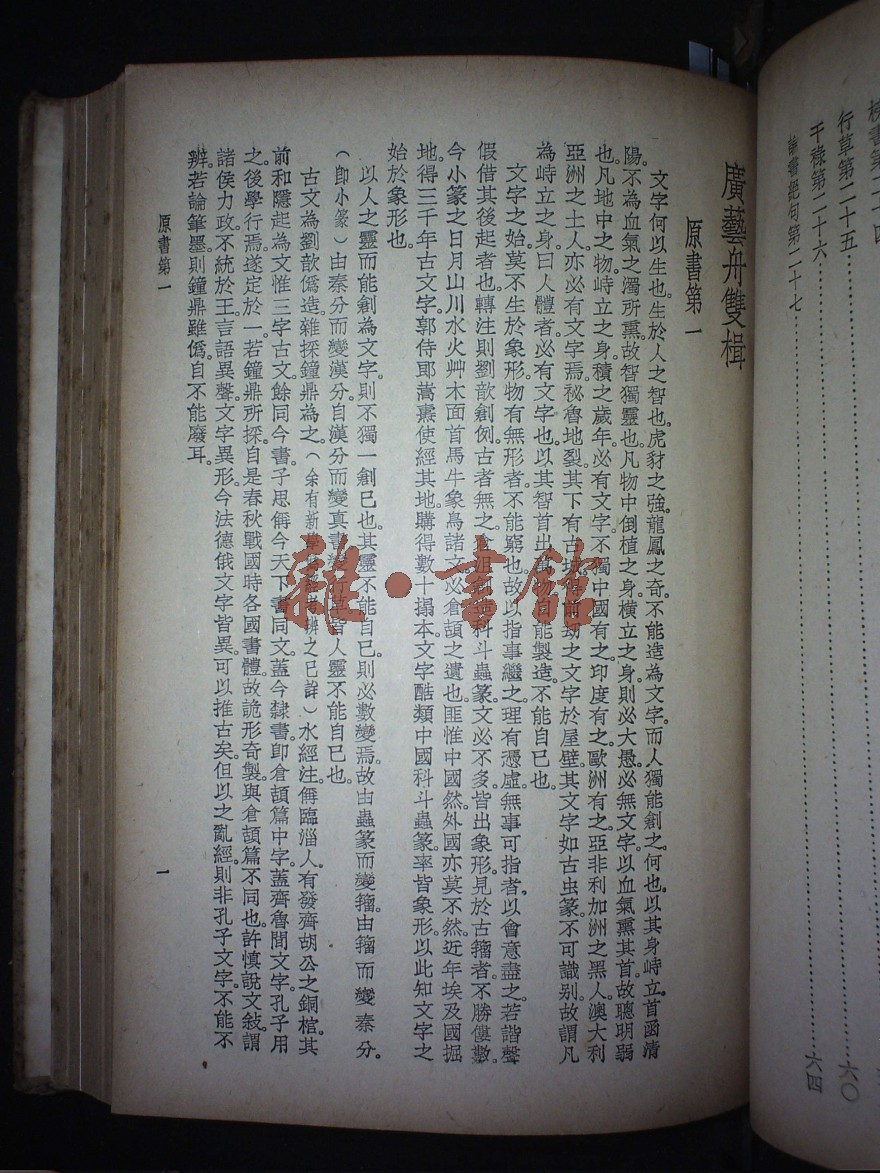 行草第二十五…………六〇
干祿第二十六…………六四
論書絕句第二十七…………
廣藝舟雙楫
原書第一
文字何以生也。生於人之智也。虎豺之強。龍鳳之奇。不能造為文字。而人獨能創之。何也。以其身峙立。首函清
陽。不為血氣之濁所熏。故智獨靈也。凡物中倒植之身。橫立之身。則必大愚。必無文字。以血氣熏其首。故聰明弱
也。凡地中之物。峙立之身。積之歲年。必有文字。不獨中國有之。印度有之。歐洲有之。亞非利加洲之黑人。澳大利
亞洲之土人。亦必有文字焉。祕魯地裂。其下有古城。得前劫之文字於屋壁。其文字如古虫篆。不可識別。故謂凡
為峙立之身。曰人體者。必有文字也。以其智首出萬物。自能製造。不能自已也。
文字之始。莫不生於象形。物有無形者。不能窮也。故以指事繼之。理有憑虛。無事可指者。以會意盡之。若諧聲
假借。其後起者也。轉注則劉歆創例。古者無之。倉沮創造科斗蟲篆。文必不多。皆出象形。見於古籀者。不勝僂數。
今小篆之日月山川水火艸木面首馬牛象鳥諸文。必倉頡之遺也。匪惟中國然。外國亦莫不然。近年埃及國掘
地。得三千年古文字。郭侍郎嵩燾使經其地。購得數十搨本。文字酷類中國科斗蟲篆。率皆象形。以此知文字之
始於象形也。
以人之靈而能創為文字。則不獨一創已也。其靈不能自已。則必數變焉。故由蟲篆而變籀。由籀而變秦分。
（卽小篆）由秦分而變漢分。自漢分而變真書。變行草。皆人靈不能自已也。
古文為劉歆僞造。雜採鐘鼎為之。（余有新學僞經考辨之已詳）水經注。稱臨淄人。有發齊胡公之銅棺。其
前和隱起為文。惟三字古文。餘同今書。子思稱今天下書同文。蓋今隸書。卽倉頡篇中字。蓋齊魯間文字。孔子用
之。後學行焉。遂定於一。若鐘鼎所採。自是春秋戰國時各國書體。故詭形奇製。與倉頡篇不同也。許慎說文敍。謂
諸侯力政。不統於王。言語異聲。文字異形。今法德俄文字皆異。可以推古矣。但以之亂經。則非孔子文字。不能不
辨。若論筆墨。則鐘鼎雖僞。自不能廢耳。
原書第一
一
雜·書館